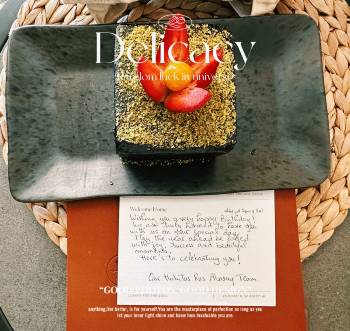 Delicacy
random luck in universe
Welcome Home
Wishing you a very happy Birthday!
We are truly honored to have you
with us on your special day.
May the year ahead be filled
with joy, success and beautiful
moments.
Here's to celebrating you!
Team
anything,live better, is for yourself.You are the masterpiece of perfection so long as you
let your inner light shine and know how invaluable you are.